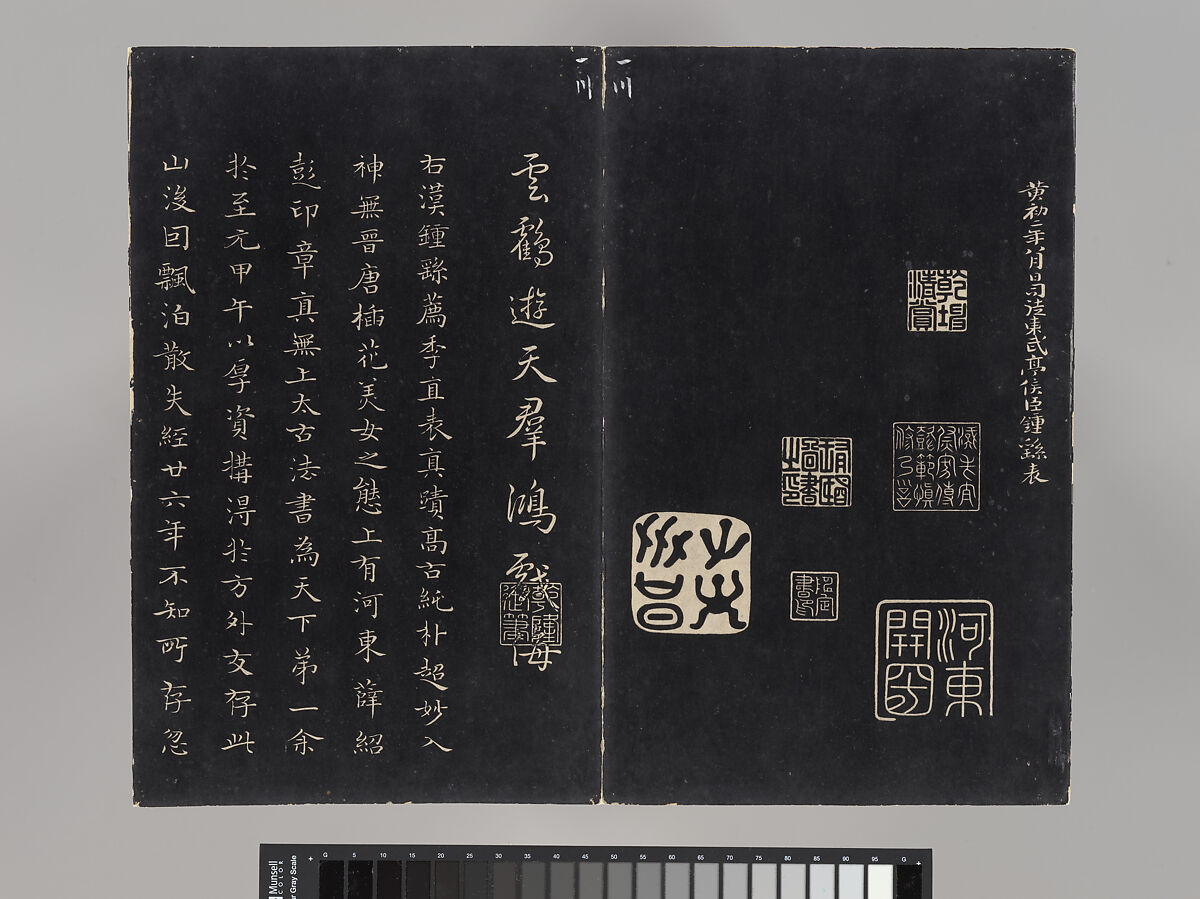 一川
黃初二年八月日司徒東武亭侯臣鍾繇表
乾隆
清賞
河東
開國
一川
雲鶴遊天羣鴻戲海
乾隆
宸翰
右漢鍾繇薦季直表真蹟高古純朴超妙入
神無晉唐插花美女之態上有河東薛紹
彭印章真無上太古法書為天下第一余
於至元甲午以厚資購得於方外友存此
山後回飄泊散失經廿六年不知所存忽
Munsell
COLOR
Gray Scale
G 5 10 15 20 25 30 35 40 45 50 55 60 65 70 75 80 85 90 95 G